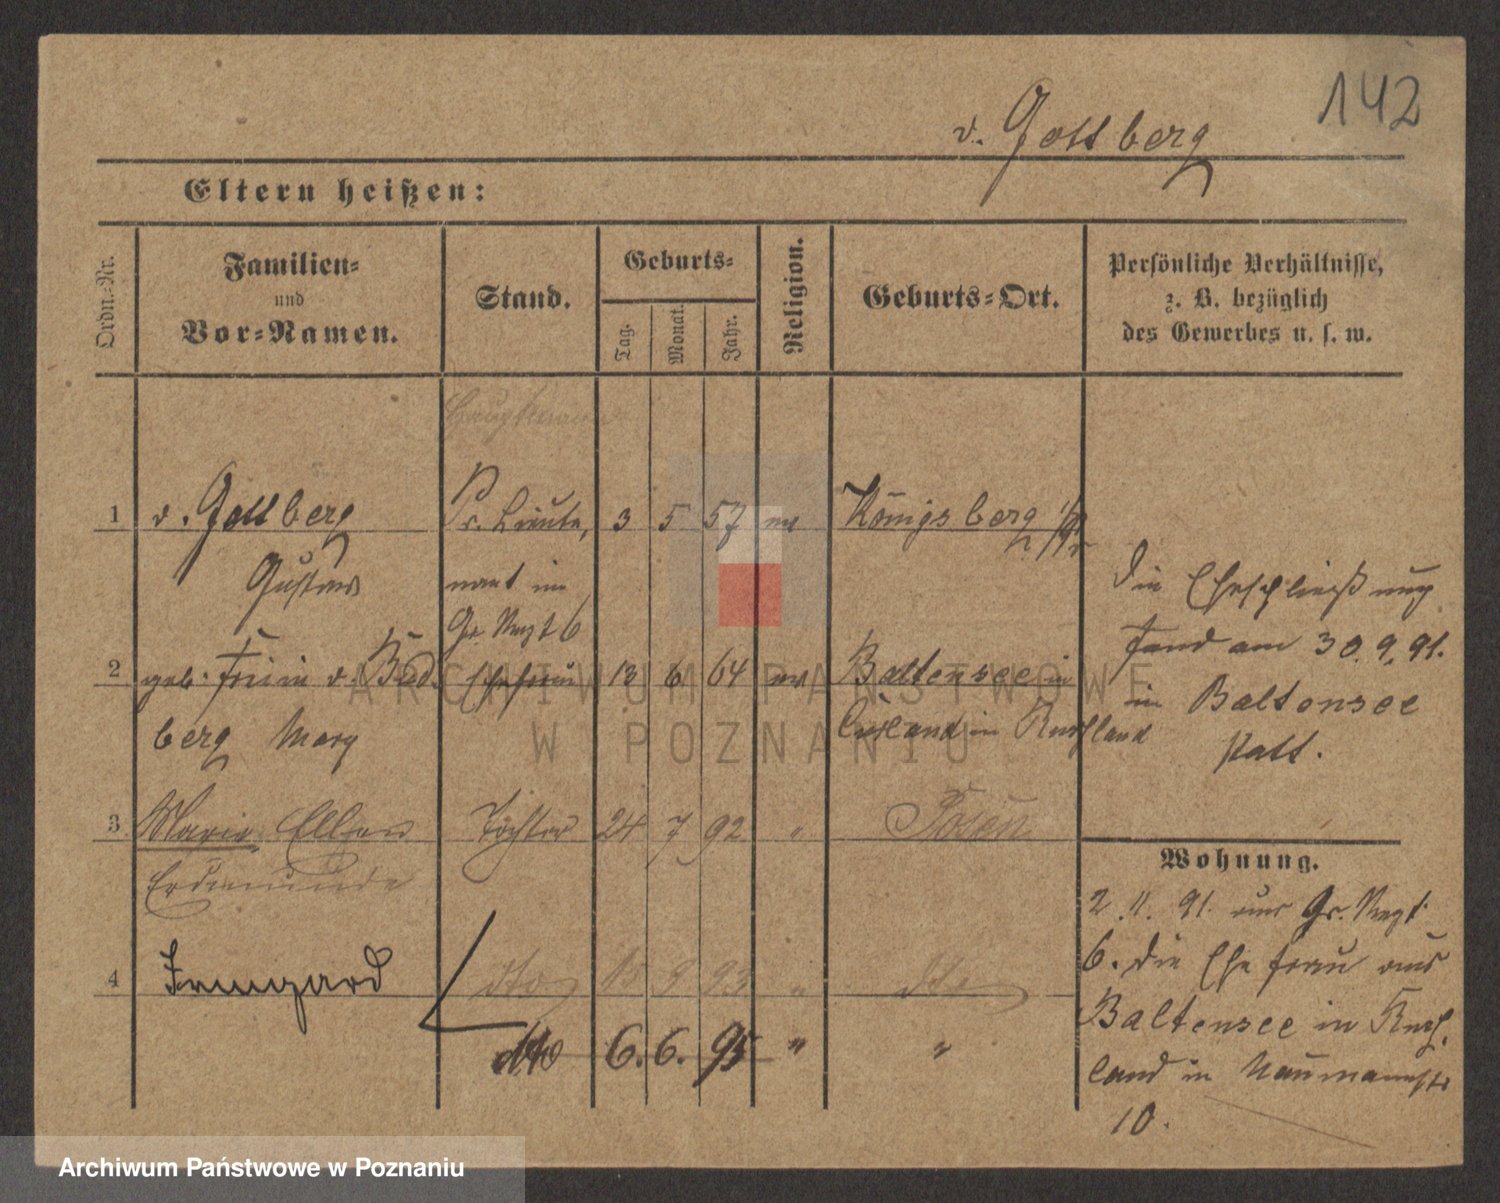 142
v. Gottberg
Eltern heißen:
Ordn.-Nr.
Familien-
und
Vor-Namen.
Stand.
Geburts-
Tag.
Monat.
Jahr.
Religion.
Geburts-Ort.
Persönliche Verhältnisse,
z. B. bezüglich
des Gewerbes u. s. w.
Hauptmann
1 v. Gottberg Pr. Lieute, 3 5 57 ev Königsberg i/Pr
Gustav nant im
Gr. Regt 6
2 geb. Freiin v. Bud, Ehefrau 13 6 64 ev Baltensee in
berg Mary Livland in Rußland
3 Marie Ellen Tochter 24 7 92 " Posen
Erdmunde
4 Irmgard dto 15 9 93 " dto
dto 6. 6. 95 " "
Die Eheschließung
fand am 30.9.91.
in Baltensee
statt.
Wohnung.
2.11.91. aus Gr. Regt.
6. die Ehefrau aus
Baltensee in Ruß,
land in Naumannstr
10.
ARCHIWUM PAŃSTWOWE
W POZNANIU
Archiwum Państwowe w Poznaniu